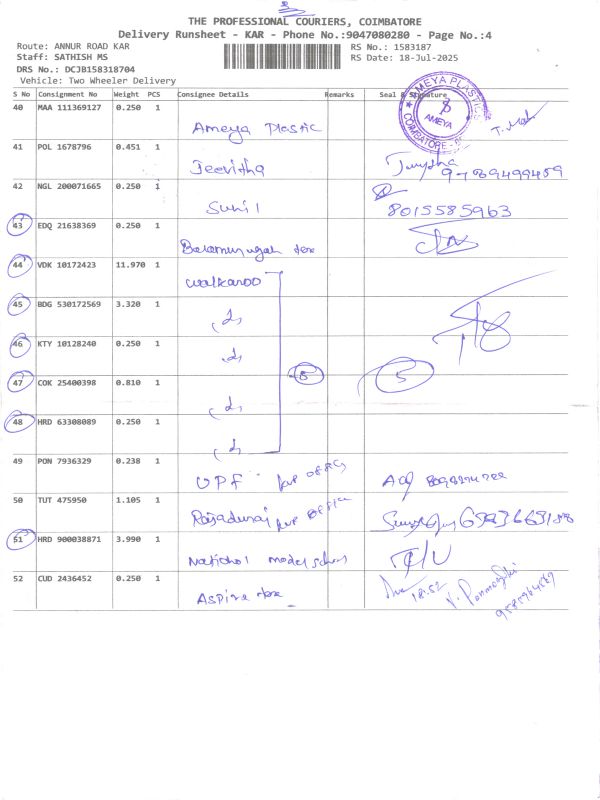 THE PROFESSIONAL COURIERS, COIMBATORE
Delivery Runsheet - KAR - Phone No.:9047080280 - Page No.:4
Route: ANNUR ROAD KAR RS No.: 1583187
Staff: SATHISH MS RS Date: 18-Jul-2025
DRS No.: DCJB158318704
Vehicle: Two Wheeler Delivery
S No Consignment No Weight PCS Consignee Details Remarks Seal & Signature
40 MAA 111369127 0.250 1
Ameya Plastic
AMEYA PLASTICS
AMEYA
COIMBATORE
41 POL 1678796 0.451 1
Jeevitha
9789499459
42 NGL 200071665 0.250 1
Sunil 8015585963
43 EDQ 21638369 0.250 1
44 VDK 10172423 11.970 1
walkaroo
45 BDG 530172569 3.320 1
46 KTY 10128240 0.250 1
47 COK 25400398 0.810 1
5 5
48 HRD 63308089 0.250 1
49 PON 7936329 0.238 1
UPF
50 TUT 475950 1.105 1
Rajadurai
51 HRD 900038871 3.990 1
National model school
52 CUD 2436452 0.250 1
Aspire 18:52